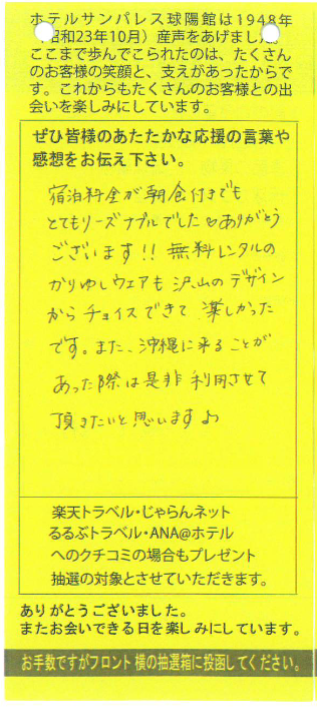 ホテルサンパレス球陽館は1948年
（昭和23年10月）産声をあげました。
ここまで歩んでこられたのは、たくさん
のお客様の笑顔と、支えがあったからで
す。これからもたくさんのお客様との出
会いを楽しみにしています。
ぜひ皆様のあたたかな応援の言葉や
感想をお伝え下さい。
宿泊料金が朝食付きでも
とてもリーズナブルでした♡ありがとう
ございます!!無料レンタルの
かりゆしウェアも沢山のデザイン
からチョイスできて楽しかった
です。また、沖縄に来ることが
あった際は是非利用させて
頂きたいと思います♪
楽天トラベル・じゃらんネット
るるぶトラベル・ANA@ホテル
へのクチコミの場合もプレゼント
抽選の対象とさせていただきます。
ありがとうございました。
またお会いできる日を楽しみにしています。
お手数ですがフロント横の抽選箱に投函してください。